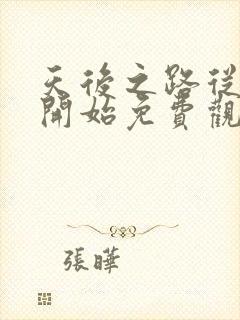 天後之路從
開始免費觀
張曄